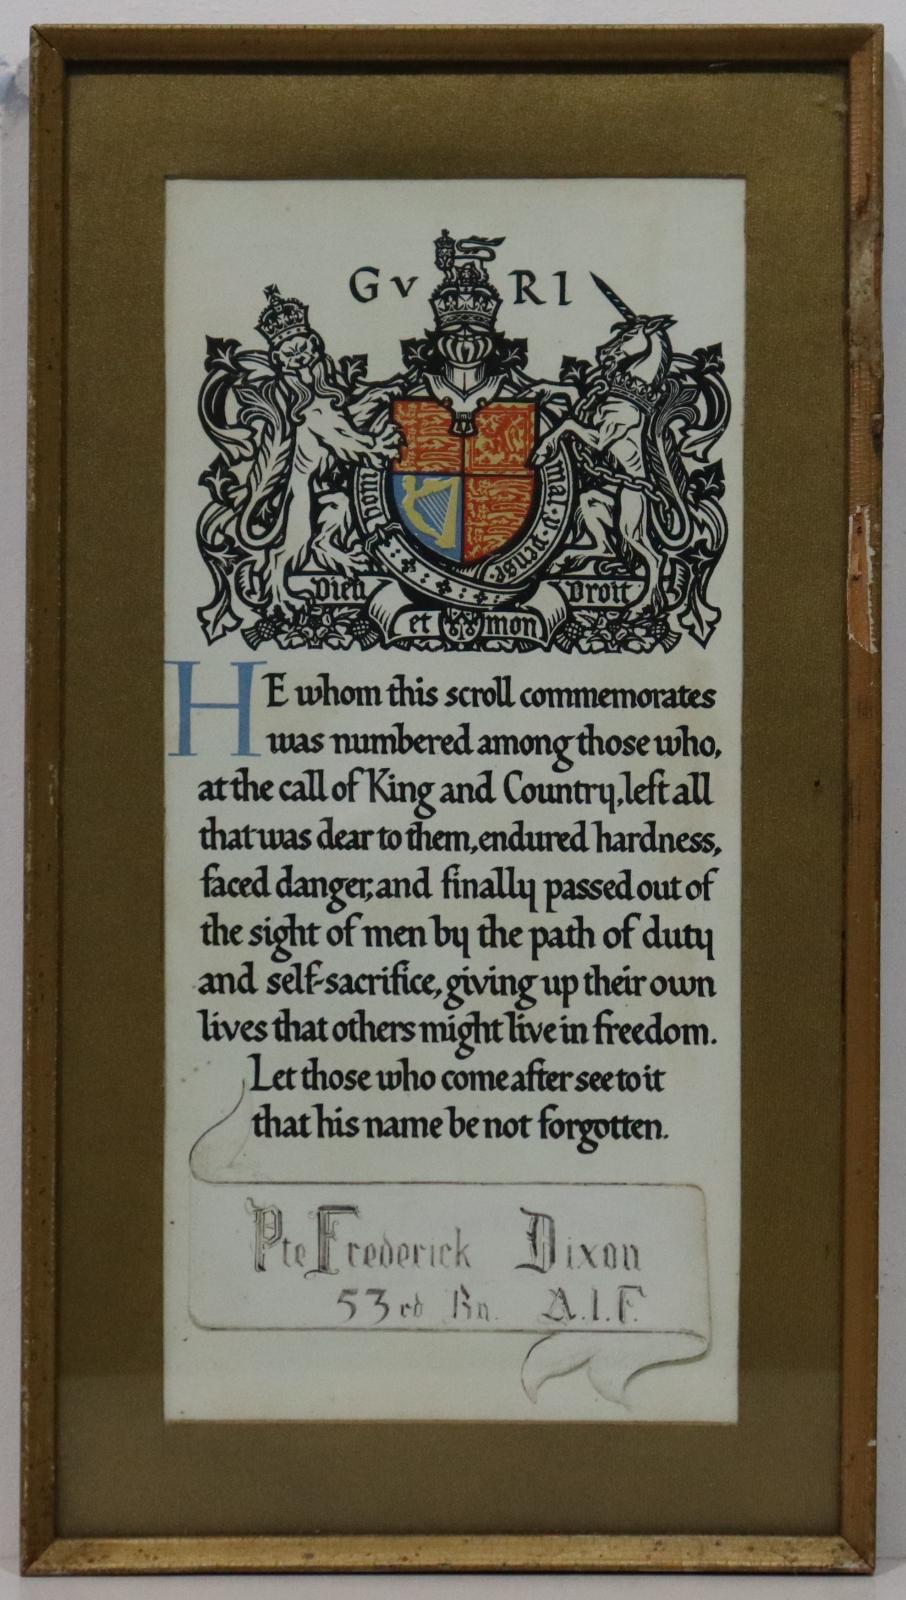 GV RI
Honi mal y pense
Dieu Droit
et mon
HE whom this scroll commemorates
was numbered among those who,
at the call of King and Country, left all
that was dear to them, endured hardness,
faced danger, and finally passed out of
the sight of men by the path of duty
and self-sacrifice, giving up their own
lives that others might live in freedom.
Let those who come after see to it
that his name be not forgotten.
Pte Frederick Dixon
53rd Bn. A.I.F.